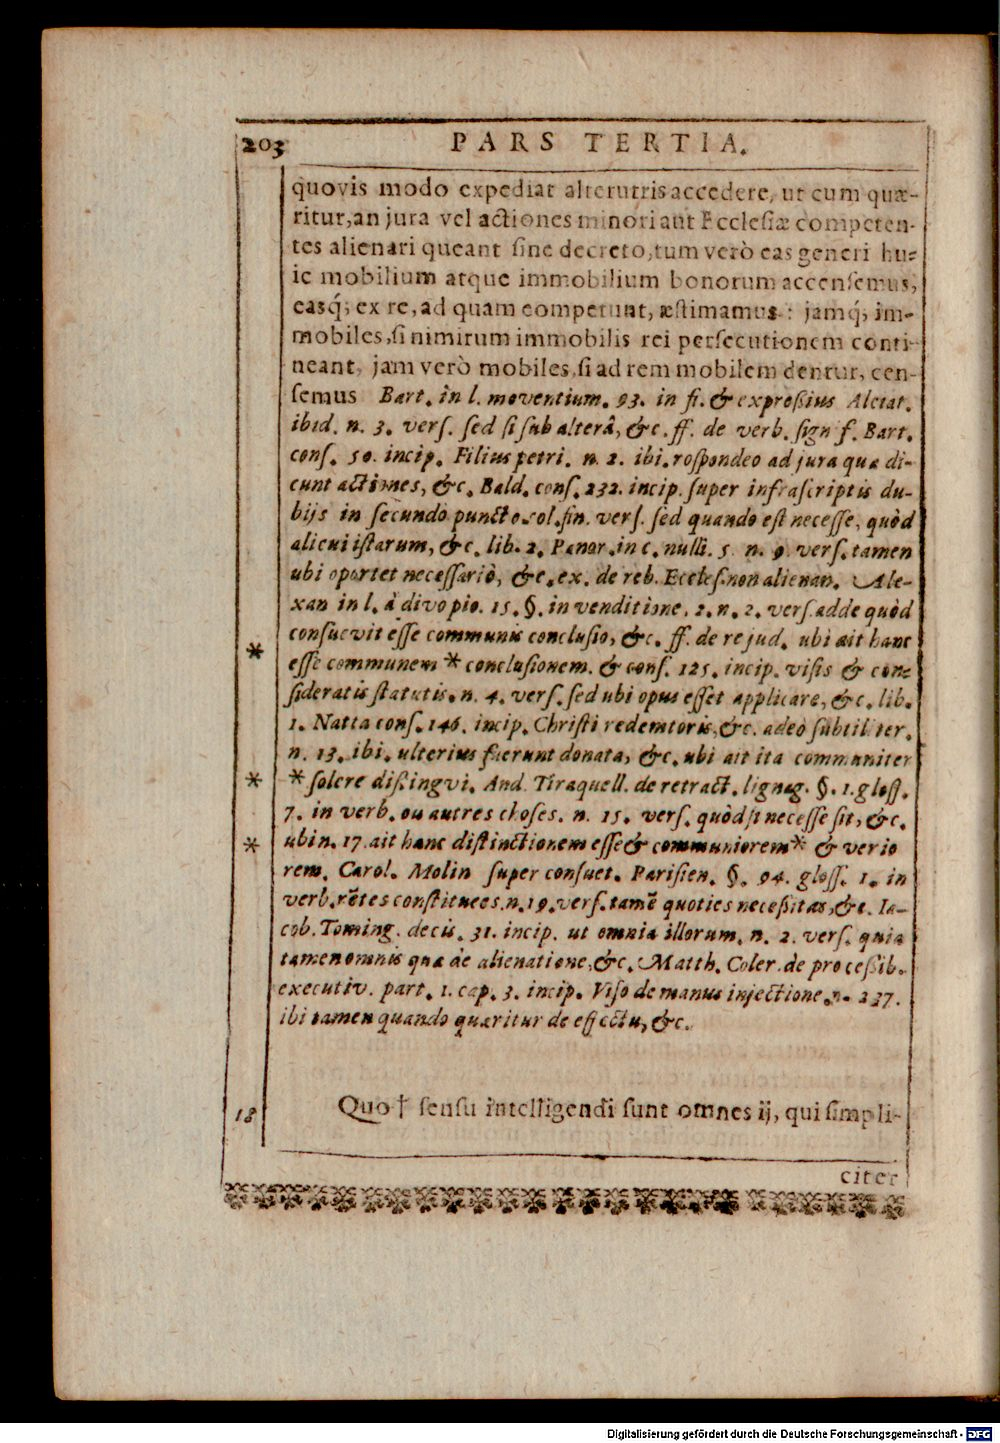 203 PARS TERTIA.
quovis modo expediat alterutris accedere, ut cum quæ-
ritur, an jura vel actiones minori aut Ecclesiæ competen-
tes alienari queant sine decreto, tum verò eas generi hu-
ic mobilium atque immobilium bonorum accensemus,
easq́; ex re, ad quam competunt, æstimamus: jamq́; im-
mobiles, si nimirum immobilis rei persecutionem conti-
neant, jam verò mobiles, si ad rem mobilem dentur, cen-
semus Bart. in l. moventium. 93. in fi. & expreßius Alciat.
ibid. n. 3. vers. sed si sub alterâ, &c. ff. de verb. sign f. Bart.
cons. 50. incip. Filius petri. n. 2. ibi. rospondeo ad jura quæ di-
cunt actiones, &c. Bald. cons. 232. incip. super infrascriptis du-
bijs in secundo puncto col. fin. vers. sed quando est necesse, quòd
alicui istarum, &c. lib. 2. Panor. in c. nulli. 5 n. 9. vers. tamen
ubi oportet necessariò, &c. ex. de reb. Eccles. non alienan. Ale-
xan in l. à divo pio. 15. §. in venditione. 2. n. 2. vers. adde quòd
consuevit esse communis conclusio, &c. ff. de re jud. ubi ait hanc
* esse communem * conclusionem. & cons. 125. incip. visis & con-
sideratis statutis. n. 4. vers. sed ubi opus esset applicare, &c. lib.
1. Natta cons. 146. incip. Christi redemtoris, &c. adeò subtiliter.
n. 13. ibi. ulterius fuerunt donata, &c. ubi ait ita communiter
* * solere distingvi. And. Tiraquell. de retract. lignag. §. 1. gloss.
7. in verb. ou autres choses. n. 15. vers. quòd si necesse sit, &c.
* ubi n. 17. ait hanc distinctionem esse & communiorem * & verio
rem. Carol. Molin super consuet. Parisien. §. 94. gloss. 1. in
verb. rẽtes constituees. n. 19. vers. tamẽ quoties neceßitas, &c. Ia-
cob. Toming. decis. 31. incip. ut omnia illorum. n. 2. vers. quia
tamen omnis quæ de alienatione, &c. Matth. Coler. de proceßib.
executiv. part. 1. cap. 3. incip. Viso de manus injectione. n. 237.
ibi tamen quando quæritur de effectu, &c.
18 Quo † sensu intelligendi sunt omnes ij, qui simpli-
citer
Digitalisierung gefördert durch die Deutsche Forschungsgemeinschaft - DFG